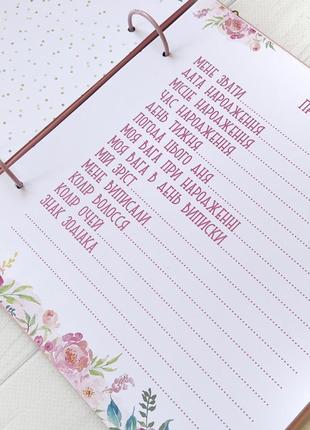 МЕНЕ ЗВАТИ
ДАТА НАРОДЖЕННЯ
МІСЦЕ НАРОДЖЕННЯ
ЧАС НАРОДЖЕННЯ
ДЕНЬ ТИЖНЯ
ПОГОДА ЦЬОГО ДНЯ
МОЯ ВАГА ПРИ НАРОДЖЕННІ
МОЯ ВАГА В ДЕНЬ ВИПИСКИ
МІЙ ЗРІСТ
МЕНЕ ВИПИСАЛИ
КОЛІР ВОЛОССЯ
КОЛІР ОЧЕЙ
ЗНАК ЗОДІАКА